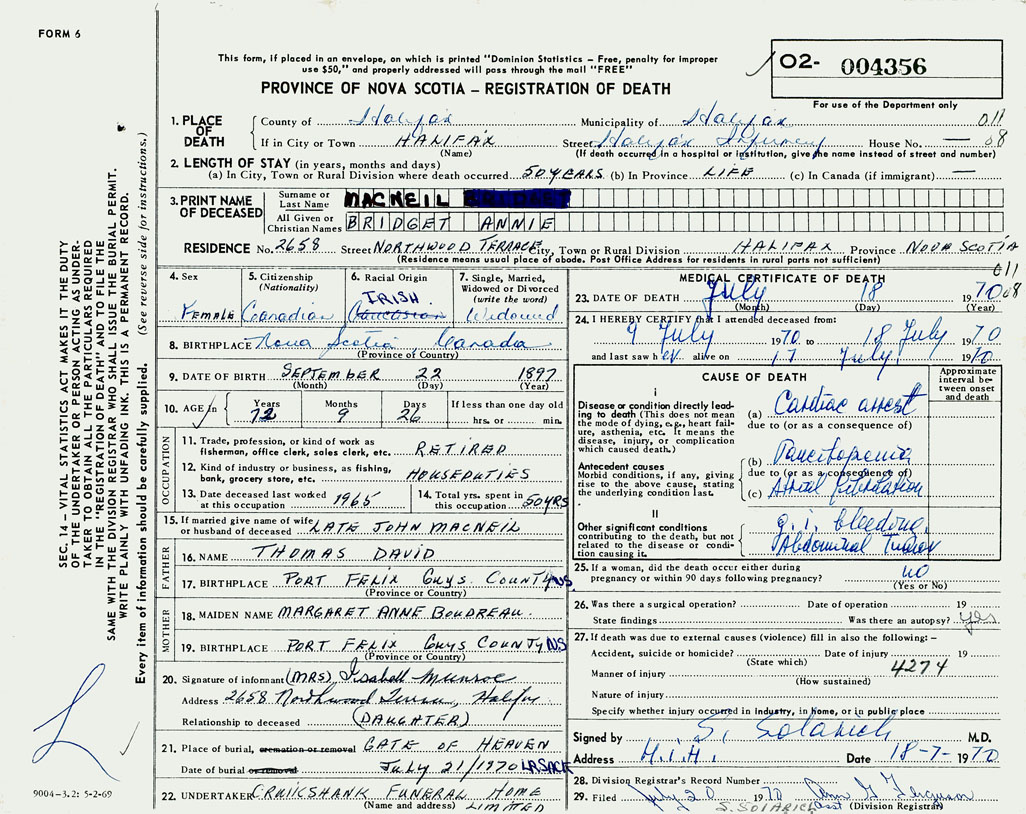 FORM 6
This form, if placed in an envelope, on which is printed "Dominion Statistics – Free, penalty for improper
use $50," and properly addressed will pass through the mail "FREE"
O2- 004356
For use of the Department only
PROVINCE OF NOVA SCOTIA – REGISTRATION OF DEATH
1. PLACE OF DEATH
County of Halifax Municipality of Halifax 011
If in City or Town HALIFAX Street Halifax Infirmary House No. — 08
(Name) (If death occurred in a hospital or institution, give the name instead of street and number)
2. LENGTH OF STAY (in years, months and days)
(a) In City, Town or Rural Division where death occurred 50 YEARS (b) In Province LIFE (c) In Canada (if immigrant) —
3. PRINT NAME OF DECEASED
Surname or Last Name MACNEIL
All Given or Christian Names BRIDGET ANNIE
RESIDENCE No. 2658 Street NORTHWOOD TERRACE City, Town or Rural Division HALIFAX Province NOVA SCOTIA
(Residence means usual place of abode. Post Office Address for residents in rural parts not sufficient)
011
08
4. Sex
FEMALE
5. Citizenship (Nationality)
Canadian
6. Racial Origin
IRISH
Caucasian
7. Single, Married, Widowed or Divorced (write the word)
Widowed
8. BIRTHPLACE Nova Scotia, Canada
(Province of Country)
9. DATE OF BIRTH SEPTEMBER 22 1897
(Month) (Day) (Year)
10. AGE in Years 72 Months 9 Days 26 If less than one day old hrs. or min.
OCCUPATION
11. Trade, profession, or kind of work as fisherman, office clerk, sales clerk, etc. RETIRED
12. Kind of industry or business, as fishing, bank, grocery store, etc. HOUSEDUTIES
13. Date deceased last worked at this occupation 1965
14. Total yrs. spent in this occupation 50 YRS
15. If married give name of wife or husband of deceased LATE JOHN MACNEIL
FATHER
16. NAME THOMAS DAVID
17. BIRTHPLACE PORT FELIX GUYS. COUNTY NS
(Province or Country)
MOTHER
18. MAIDEN NAME MARGARET ANNE BOUDREAU
19. BIRTHPLACE PORT FELIX GUYS COUNTY NS
(Province or Country)
20. Signature of informant (MRS) Isabell Munroe
Address 2658 Northwood Terrace, Halifax
Relationship to deceased (DAUGHTER)
21. Place of burial, cremation or removal GATE OF HEAVEN
Date of burial or removal JULY 21/1970 LR SACK
22. UNDERTAKER CRUIKSHANK FUNERAL HOME
(Name and address) LIMITED
MEDICAL CERTIFICATE OF DEATH
23. DATE OF DEATH July 18 1970
(Month) (Day) (Year)
24. I HEREBY CERTIFY that I attended deceased from:
9 July 1970 to 18 July 1970
and last saw her alive on 17 July, 1970
CAUSE OF DEATH
Approximate interval between onset and death
I
Disease or condition directly leading to death (This does not mean the mode of dying, e.g., heart failure, asthenia, etc. It means the disease, injury, or complication which caused death.)
(a) Cardiac arrest
due to (or as a consequence of)
Antecedent causes
Morbid conditions, if any, giving rise to the above cause, stating the underlying condition last.
(b) Pancytopenia
due to (or as a consequence of)
(c) Atrial fibrillation
II
Other significant conditions contributing to the death, but not related to the disease or condition causing it.
g.i. bleeding.
Abdominal Tumor
25. If a woman, did the death occur either during pregnancy or within 90 days following pregnancy? no
(Yes or No)
26. Was there a surgical operation? Date of operation 19
State findings Was there an autopsy? yes
27. If death was due to external causes (violence) fill in also the following: –
Accident, suicide or homicide? Date of injury 19
(State which)
Manner of injury 4274
(How sustained)
Nature of injury
Specify whether injury occurred in industry, in home, or in public place
Signed by S. Solarich M.D.
Address H.I.H. Date 18-7-1970
28. Division Registrar's Record Number
29. Filed July 20 1970 Ann G Ferguson
S. SOLARICH Asst (Division Registrar)
SEC. 14 – VITAL STATISTICS ACT MAKES IT THE DUTY
OF THE UNDERTAKER OR PERSON ACTING AS UNDER-
TAKER TO OBTAIN ALL THE PARTICULARS REQUIRED
IN THE "REGISTRATION OF DEATH" AND TO FILE THE
SAME WITH THE DIVISION REGISTRAR WHO SHALL ISSUE THE BURIAL PERMIT.
WRITE PLAINLY WITH UNFADING INK. THIS IS A PERMANENT RECORD.
Every item of information should be carefully supplied. (See reverse side for instructions.)
9004-3.2: 5-2-69